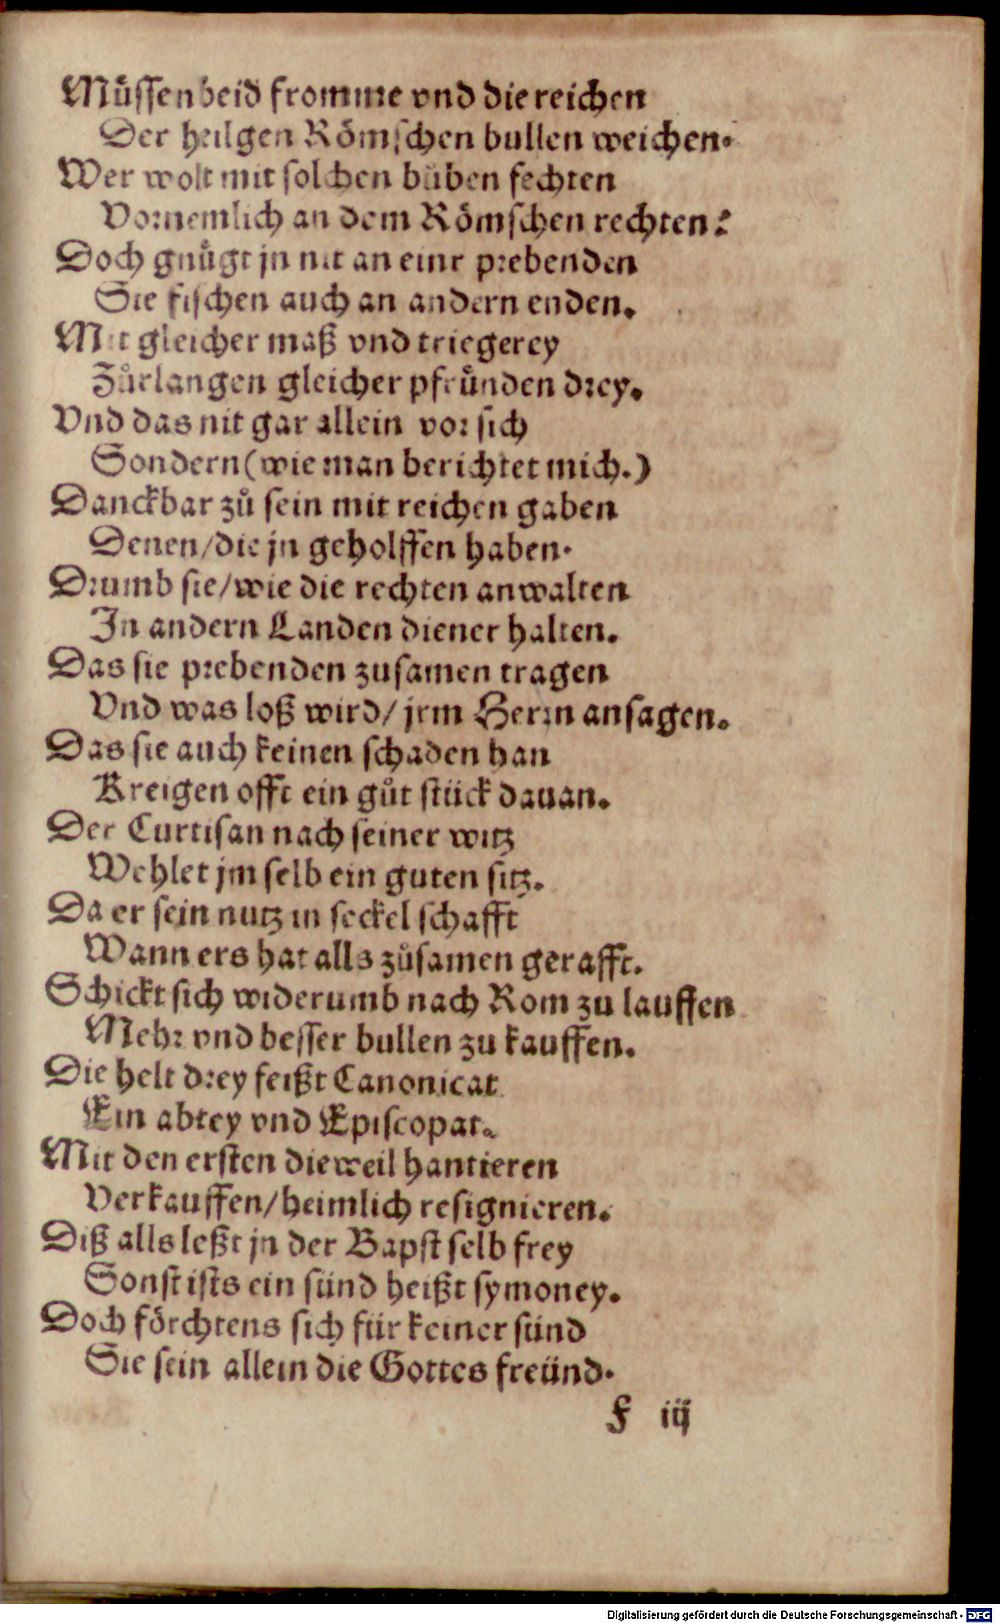 Müssen beid fromme vnd die reichen
Der heilgen Römschen bullen weichen.
Wer wolt mit solchen bůben fechten
Vornemlich an dem Römschen rechten?
Doch gnůgt jn nit an einr prebenden
Sie fischen auch an andern enden.
Mit gleicher maß vnd triegerey
Zůrlangen gleicher pfrůnden drey.
Vnd das nit gar allein vor sich
Sondern (wie man berichtet mich.)
Danckbar zů sein mit reichen gaben
Denen/die jn geholffen haben.
Drumb sie/wie die rechten anwalten
In andern Landen diener halten.
Das sie prebenden zusamen tragen
Vnd was loß wird/jrm Herrn ansagen.
Das sie auch keinen schaden han
Kreigen offt ein gůt stück dauan.
Der Curtisan nach seiner witz
Wehlet jm selb ein guten sitz.
Da er sein nutz in seckel schafft
Wann ers hat alls zůsamen gerafft.
Schickt sich widerumb nach Rom zu lauffen
Mehr vnd besser bullen zu kauffen.
Die helt drey feißt Canonicat
Ein abtey vnd Episcopat.
Mit den ersten dieweil hantieren
Verkauffen/heimlich resignieren.
Diß alls leßt jn der Bapst selb frey
Sonst ists ein sünd heißt symoney.
Doch förchtens sich für keiner sünd
Sie sein allein die Gottes freünd.
F iij
Digitalisierung gefördert durch die Deutsche Forschungsgemeinschaft - DFG